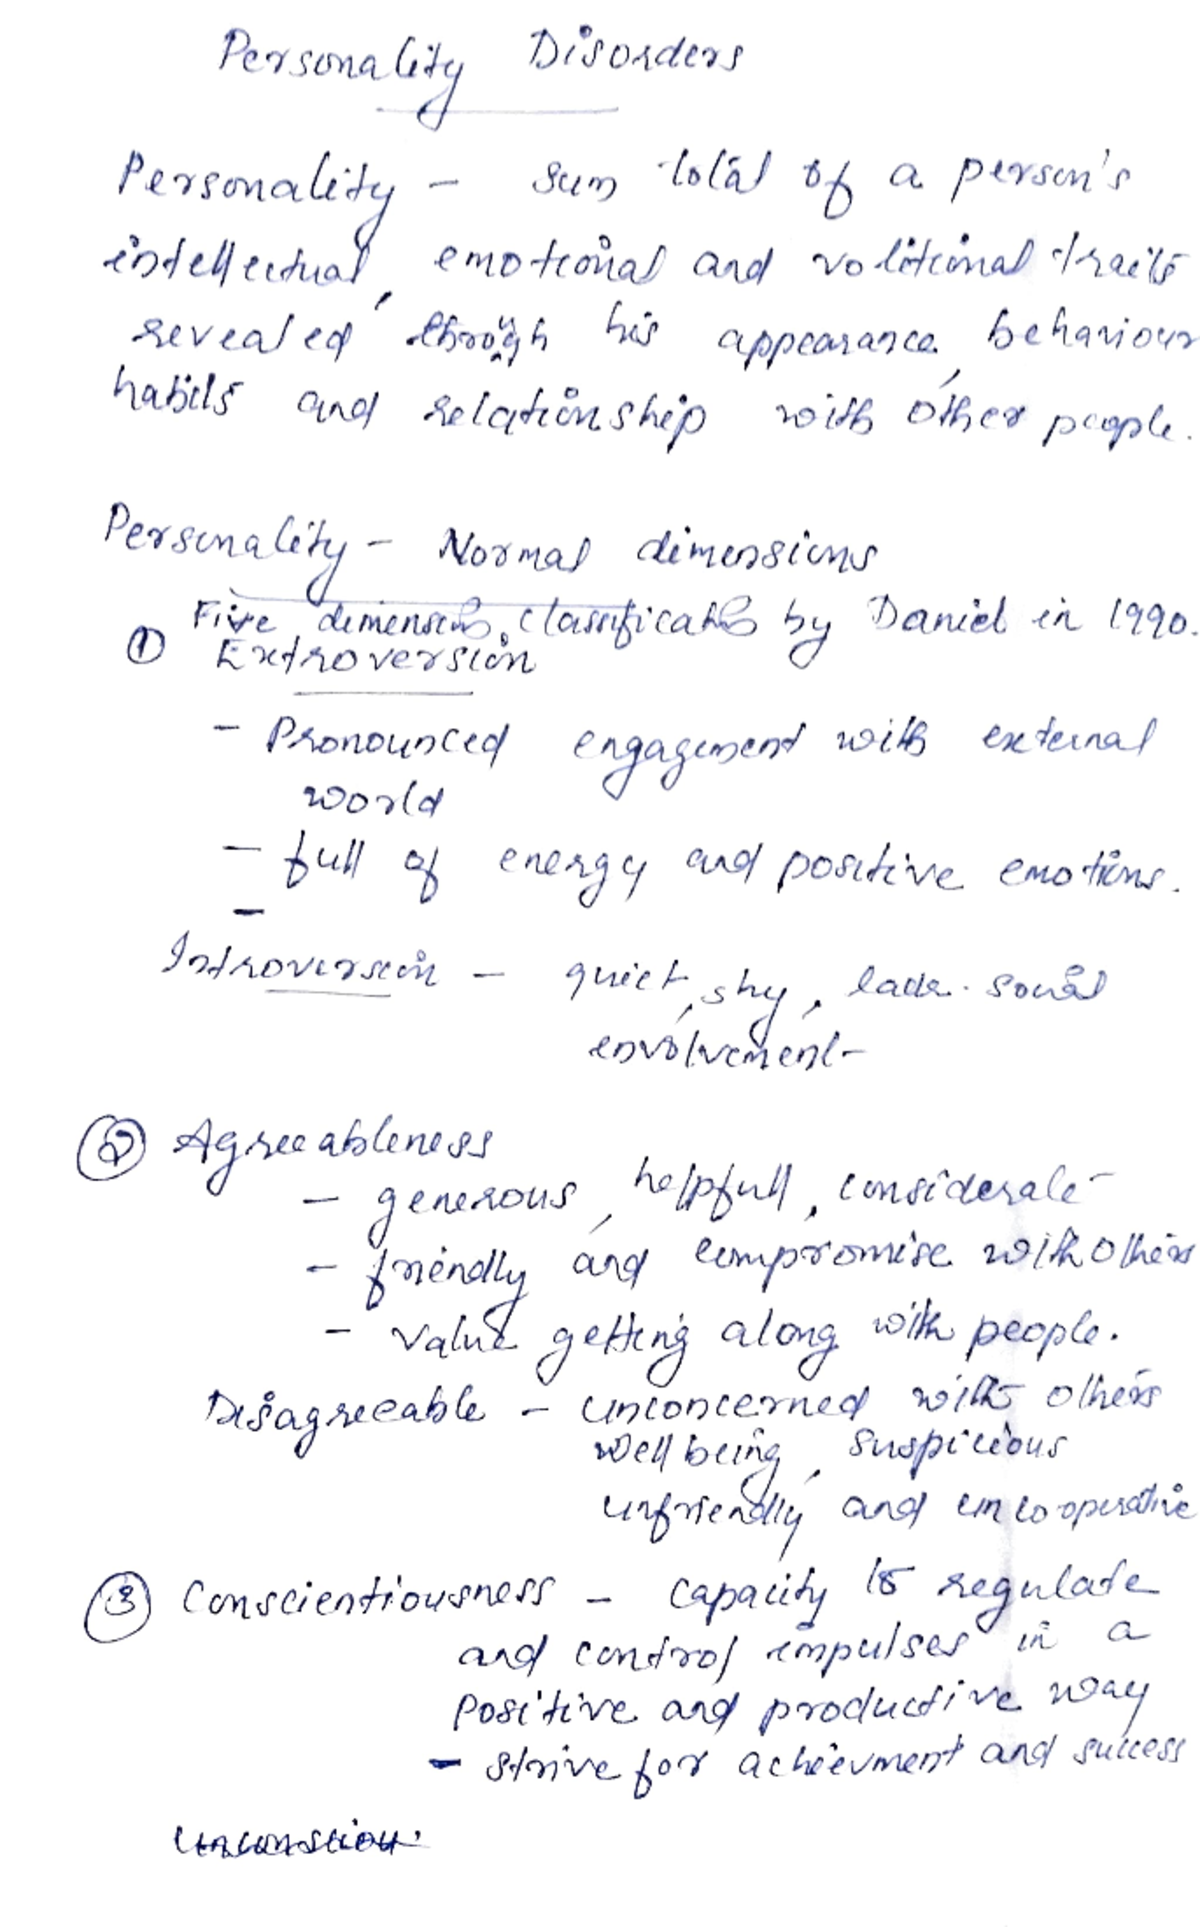 Personality Disorders
Personality - Sum total of a person's
intellectual, emotional and volitional traits
revealed through his appearance, behaviour
habits and relationship with other people.
Personality - Normal dimensions
Five dimension classification by Daniel in 1990.
① Extroversion
- Pronounced engagement with external
world
- full of energy and positive emotions.
-
Introversion - quiet, shy, lack social
involvement
② Agreeableness
- generous, helpfull, considerate
- friendly and compromise with others
- value getting along with people.
Disagreeable - unconcerned with others
well being, suspicious
unfriendly and uncooperative
③ Conscientiousness - capacity to regulate
and control impulses in a
positive and productive way
- strive for acheivment and success